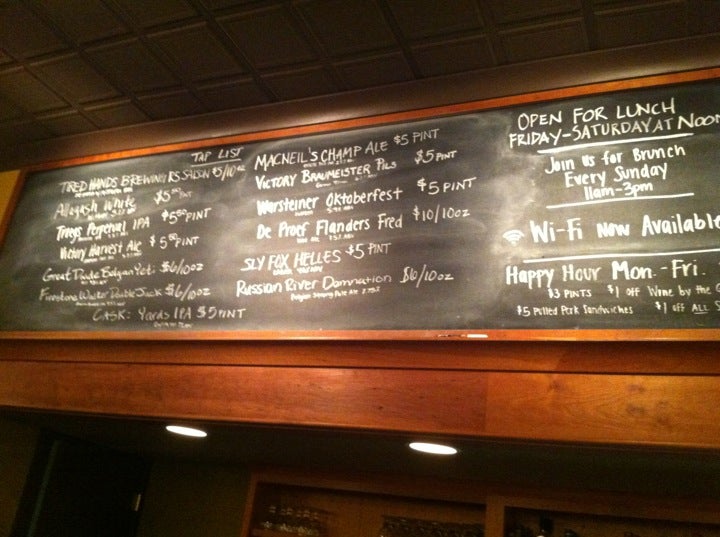 TAP LIST
TIRED HANDS BREWING RS SAISON $5/10oz
Allagash White $5.50 PINT
Troegs Perpetual IPA $5.50 PINT
Victory Harvest Ale $5.50 PINT
Great Divide Belgian Yeti: $6/10oz
Firestone Walker Double Jack $6/10oz
CASK: Yards IPA $5 PINT
MACNEIL'S CHAMP ALE $5 PINT
VICTORY BRAUMEISTER PILS $5 PINT
Warsteiner Oktoberfest $5 PINT
De Proef Flanders Fred $10/10oz
SLY FOX HELLES $5 PINT
RUSSIAN RIVER DAMNATION $6/10oz
Belgian Strong Pale Ale
OPEN FOR LUNCH
FRIDAY-SATURDAY AT NOON
JOIN US FOR BRUNCH
EVERY SUNDAY
11am-3pm
Wi-Fi Now Available
HAPPY HOUR MON.-FRI.
$3 PINTS $1 OFF WINE BY THE
$5 Pulled Pork Sandwiches $1 off ALL